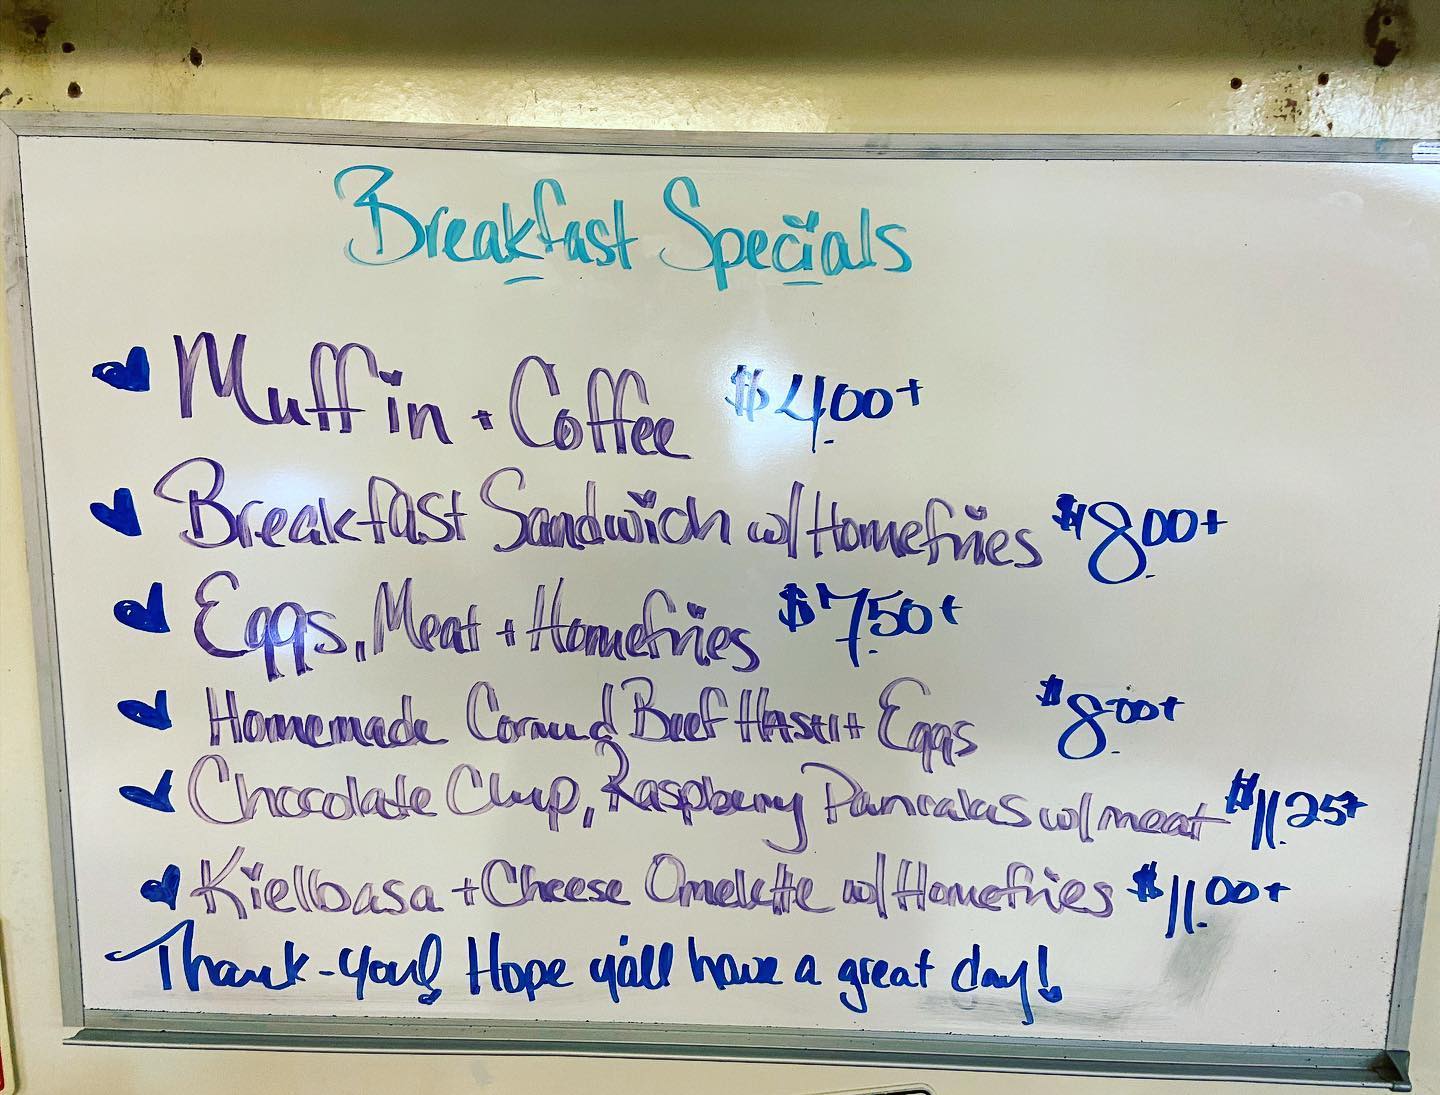 Breakfast Specials
Muffin + Coffee $4.00+
Breakfast Sandwich w/Homefries $8.00+
Eggs, Meat + Homefries $7.50+
Homemade Corned Beef Hash + Eggs $8.00+
Chocolate Chip, Raspberry Pancakes w/meat $11.25+
Kielbasa + Cheese Omelette w/Homefries $11.00+
Thank-you! Hope y'all have a great day!